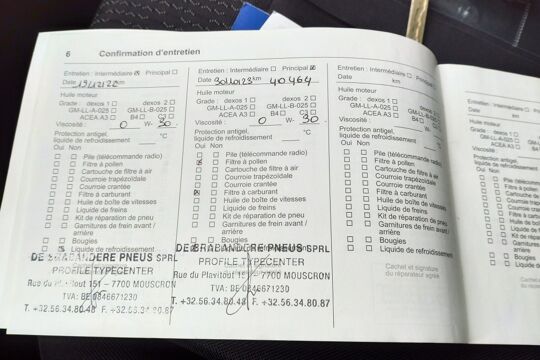 6 Confirmation d'entretien
Entretien : Intermédiaire ☒ Principal ☐
Date
Huile moteur
Grade : dexos 1 ☐ dexos 2 ☐
GM-LL-A-025 ☐ GM-LL-B-025 ☐
ACEA A3 ☐ B4 ☐ C3 ☐
Viscosité : 0 W- 30
Protection antigel,
liquide de refroidissement °C
Oui Non
☐ ☐ Pile (télécommande radio)
☒ ☐ Filtre à pollen
☐ ☐ Cartouche de filtre à air
☐ ☐ Courroie trapézoïdale
☐ ☐ Courroie crantée
☐ ☐ Filtre à carburant
☐ ☐ Huile de boîte de vitesses
☐ ☐ Liquide de freins
☐ ☐ Kit de réparation de pneu
☐ ☐ Garnitures de frein avant /
arrière
☐ ☐ Bougies
Liquide de refroidissement
DE BRABANDERE PNEUS SPRL
PROFILE TYPECENTER
Rue du Plavitout 151 - 7700 MOUSCRON
TVA: BE 0846671230
T. +32.56.34.80.48 F. +32.56.34.80.87
Entretien : Intermédiaire ☐ Principal ☒
Date km 40464
Huile moteur
Grade : dexos 1 ☐ dexos 2 ☐
GM-LL-A-025 ☐ GM-LL-B-025 ☐
ACEA A3 ☐ B4 ☐ C3 ☐
Viscosité : 0 W- 30
Protection antigel,
liquide de refroidissement °C
Oui Non
☐ ☐ Pile (télécommande radio)
☐ ☐ Filtre à pollen
☐ ☐ Cartouche de filtre à air
☐ ☐ Courroie trapézoïdale
☐ ☐ Courroie crantée
☒ ☐ Filtre à carburant
☐ ☐ Huile de boîte de vitesses
☐ ☐ Liquide de freins
☐ ☐ Kit de réparation de pneu
☐ ☐ Garnitures de frein avant /
arrière
☐ ☐ Bougies
DE BRABANDERE PNEUS SPRL
PROFILE TYPECENTER
Rue du Plavitout 151 - 7700 MOUSCRON
TVA: BE 0846671230
T. +32.56.34.80.48 F. +32.56.34.80.87
Entretien : Intermédiaire ☐ Principal ☐
Date km
Huile moteur
Grade : dexos 1 ☐ dexos 2 ☐
GM-LL-A-025 ☐ GM-LL-B-025 ☐
ACEA A3 ☐ B4 ☐ C3 ☐
Viscosité : W-
Protection antigel,
liquide de refroidissement °C
Oui Non
☐ ☐ Pile (télécommande radio)
☐ ☐ Filtre à pollen
☐ ☐ Cartouche de filtre à air
☐ ☐ Courroie trapézoïdale
☐ ☐ Courroie crantée
☐ ☐ Filtre à carburant
☐ ☐ Huile de boîte de vitesses
☐ ☐ Liquide de freins
☐ ☐ Kit de réparation de pneu
☐ ☐ Garnitures de frein avant /
arrière
☐ ☐ Bougies
☐ ☐ Liquide de refroidissement
Cachet et signature
du réparateur agréé
Entretien : Inter
Date
Huile moteur
Grade : dexos
GM-LL-A-0
ACEA
Viscosité :
Protection antigel,
liquide de refroidis
Oui Non
☐ ☐ Pile (télé
☐ ☐ Filtre à
☐ ☐ Cartou
☐ ☐ Courro
☐ ☐ Courr